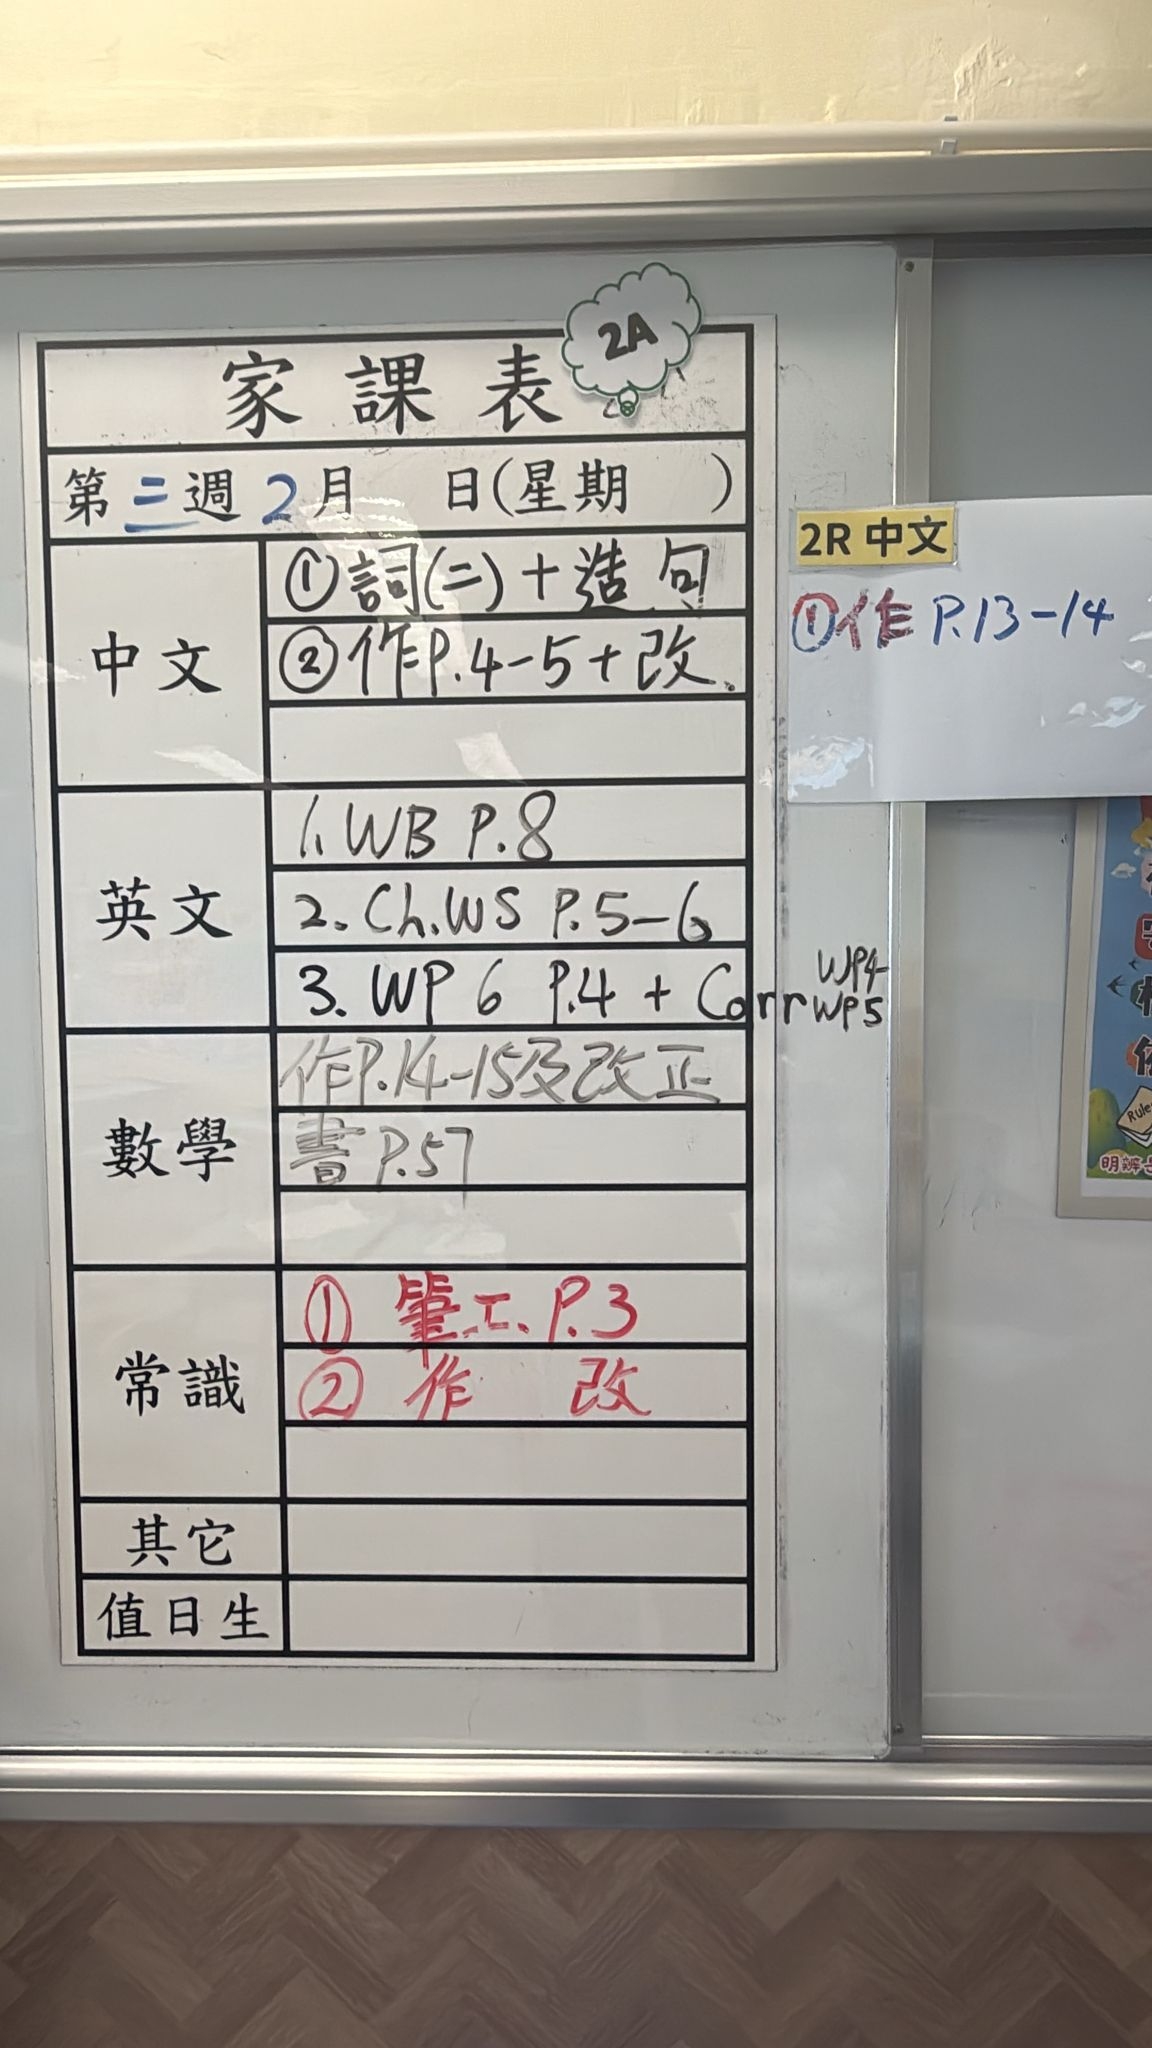 2A
家課表
第三週2月 日(星期 )
中文
①詞(二)+造句
②作P.4-5+改.
英文
1. WB P.8
2. Ch.WS P.5-6
3. WP 6 P.4 + Corr WP4 WP5
數學
作P.14-15及改正
書P.57
常識
① 筆工.P.3
② 作 改
其它
值日生
2R 中文
①作 P.13-14
Ruler
明辨